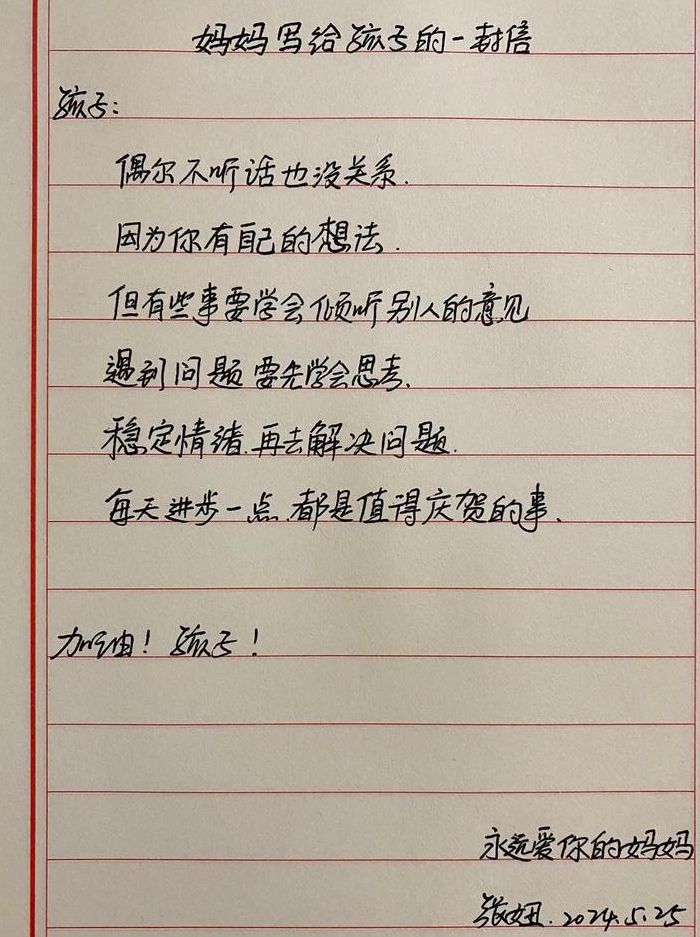 妈妈写给孩子的一封信
孩子:
偶尔不听话也没关系.
因为你有自己的想法.
但有些事要学会倾听别人的意见
遇到问题要先学会思考.
稳定情绪.再去解决问题.
每天进步一点.都是值得庆贺的事.
加油!孩子!
永远爱你的妈妈
张妞.2024.5.25